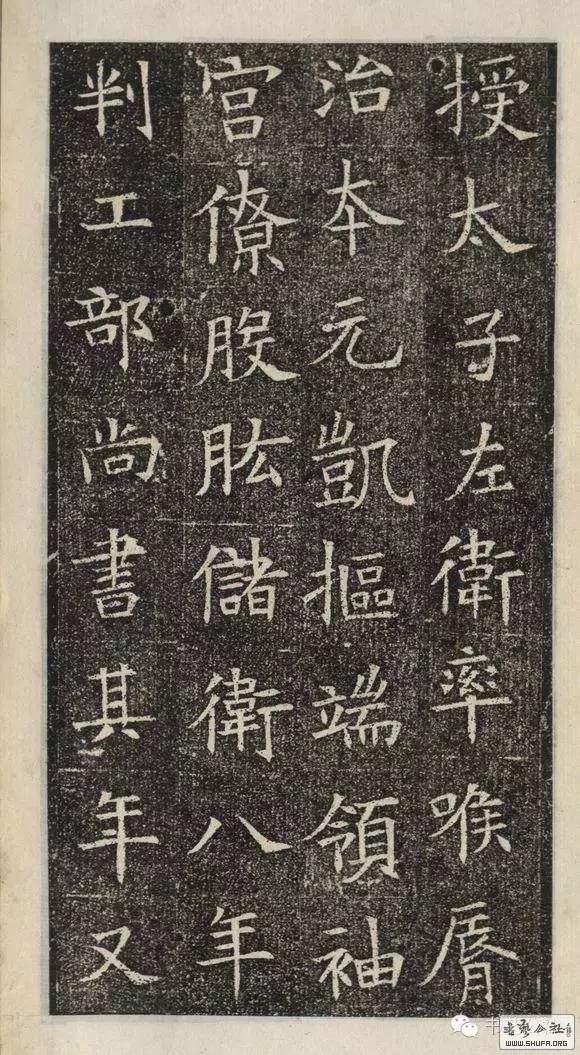 授太子左衛率喉脣
治本元凱摳端領袖
官僚股肱儲衛八年
判工部尚書其年又
WWW.SHUFA.ORG